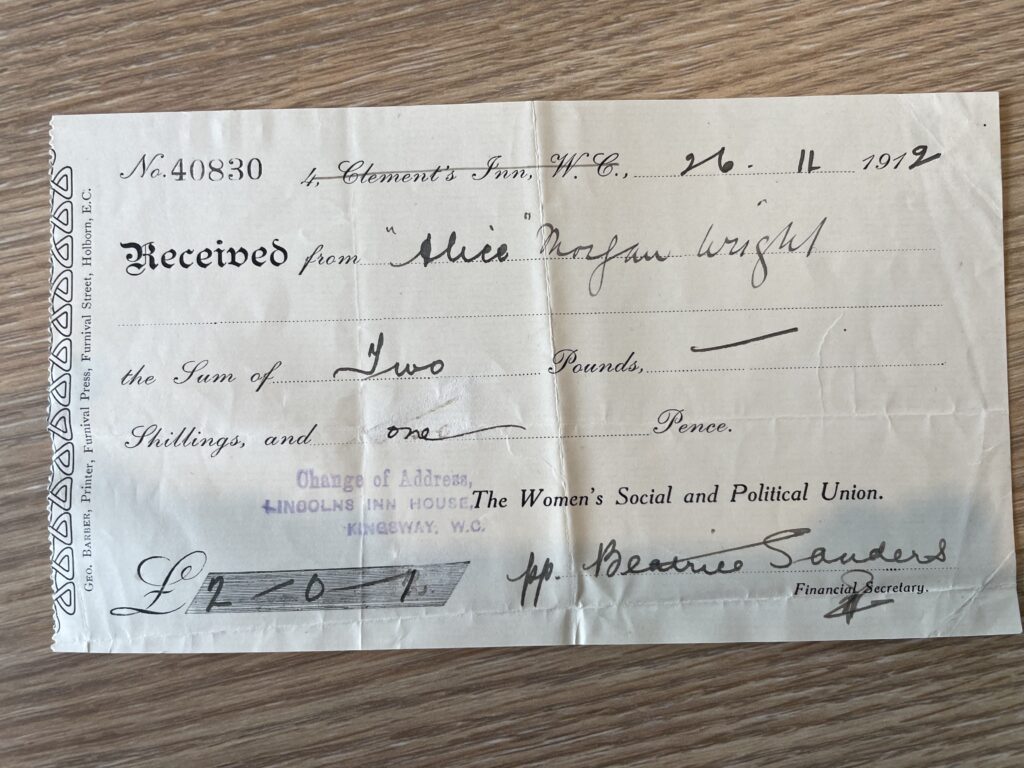 No. 40830 4, Clement's Inn, W.C., 26 . 11 1912
Received from "Alice" Morgan Wright
the Sum of Two Pounds, —
Shillings, and one Pence.
Change of Address,
LINCOLNS INN HOUSE,
KINGSWAY, W.C.
The Women's Social and Political Union.
£ 2 — 0 — 1.
pp. Beatrice Sanders
Financial Secretary.
GEO. BARBER, Printer, Furnival Press, Furnival Street, Holborn, E.C.